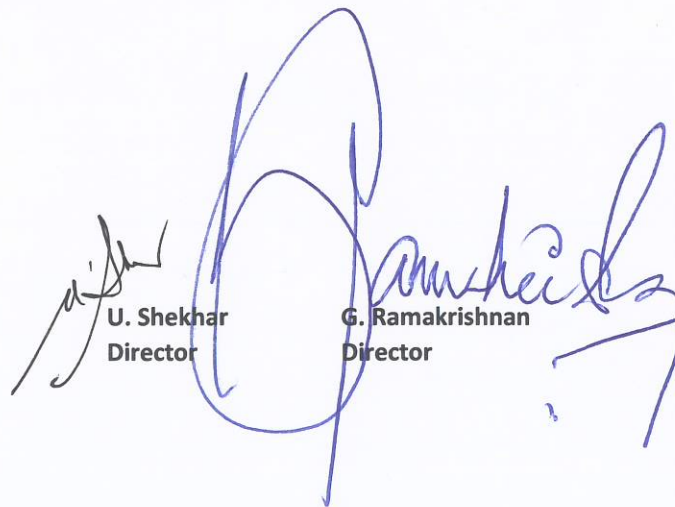 U. Shekhar
Director
G. Ramakrishnan
Director